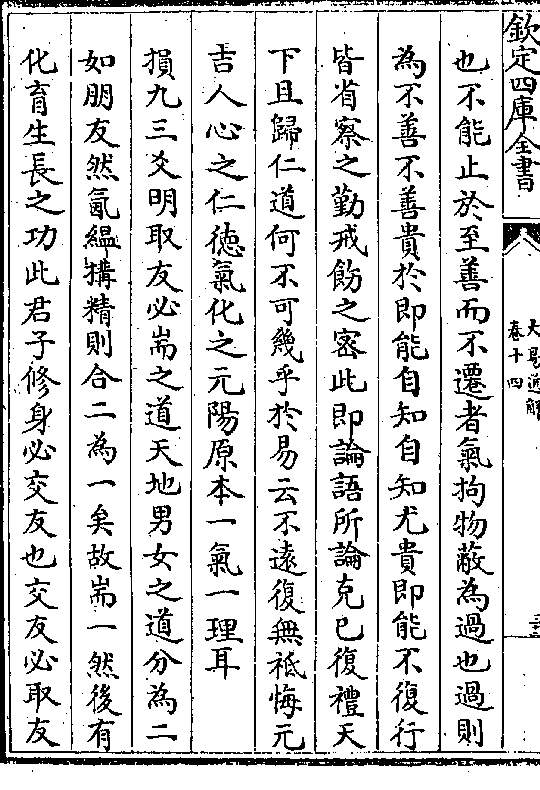 欽定四庫全書
大易通解
卷十四
也不能止於至善而不遷者氣拘物蔽為過也過則
為不善不善貴於即能自知自知尤貴即能不復行
皆省察之勤戒飭之密此即論語所論克已復禮天
下且歸仁道何不可幾乎於易云不遠復無祗悔元
吉人心之仁德氣化之元陽原本一氣一理耳
損九三爻明取友必耑之道天地男女之道分為二
如朋友然氤緼搆精則合二為一矣故耑一然後有
化育生長之功此君子修身必交友也交友必取友